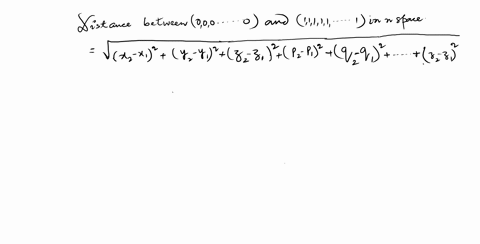 Distance between (0,0,0 ...... 0) and (1,1,1,1, ...... 1) in n space
= √(x₂-x₁)² + (y₂-y₁)² + (z₂-z₁)² + (p₂-p₁)² + (q₂-q₁)² + ...... + (z₂-z₁)²